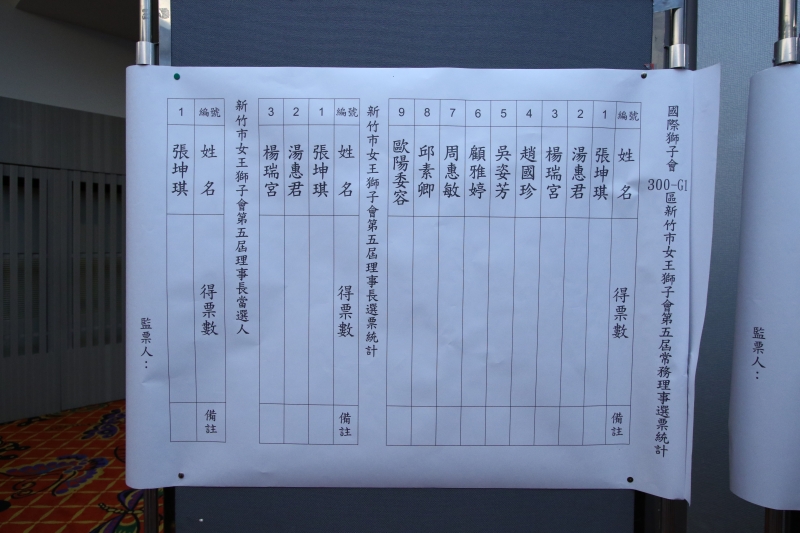 國際獅子會 300-G1 區新竹市女王獅子會第五屆常務理事選票統計
編號 姓名 得票數 備註
1 張坤琪
2 湯惠君
3 楊瑞宮
4 趙國珍
5 吳姿芳
6 顧雅婷
7 周惠敏
8 邱素卿
9 歐陽委容
新竹市女王獅子會第五屆理事長選票統計
編號 姓名 得票數 備註
1 張坤琪
2 湯惠君
3 楊瑞宮
新竹市女王獅子會第五屆理事長當選人
編號 姓名 得票數 備註
1 張坤琪
監票人：
監票人：